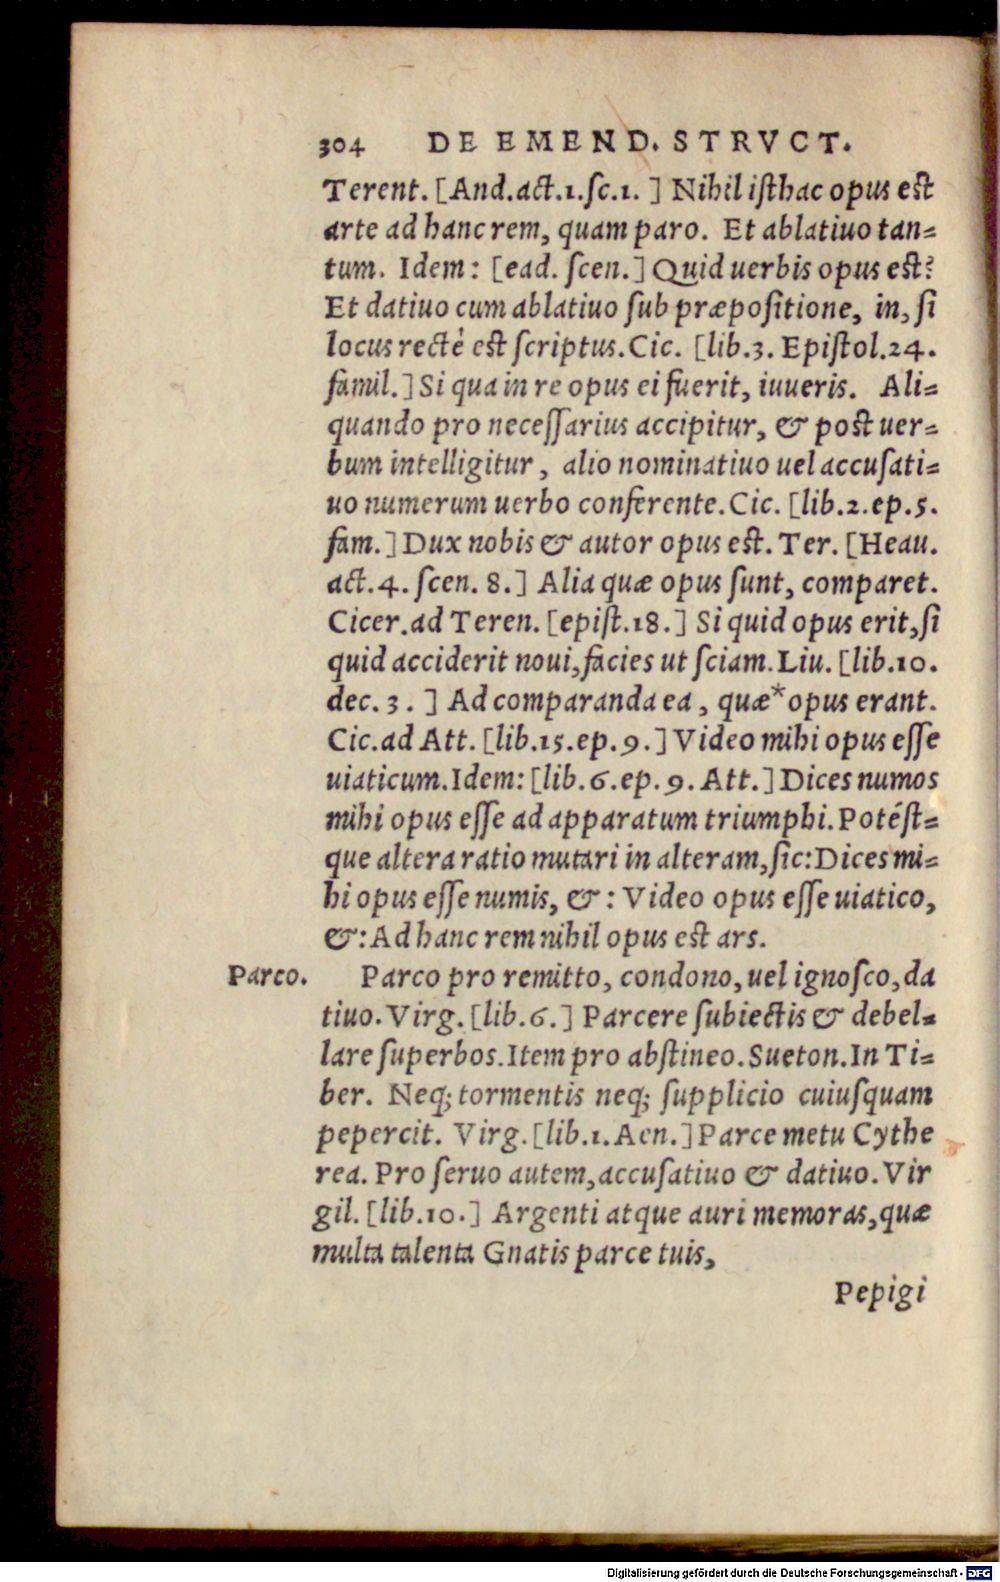 304 DE EMEND. STRVCT.
Terent. [And.act.1.sc.1. ] Nihil isthac opus est
arte ad hanc rem, quam paro. Et ablatiuo tan-
tum. Idem: [ead. scen.] Quid uerbis opus est?
Et datiuo cum ablatiuo sub præpositione, in, si
locus rectè est scriptus. Cic. [lib.3. Epistol.24.
famil.] Si qua in re opus ei fuerit, iuueris. Ali-
quando pro necessarius accipitur, & post uer-
bum intelligitur, alio nominatiuo uel accusati-
uo numerum uerbo conferente. Cic. [lib.2.ep.5.
fam.] Dux nobis & autor opus est. Ter. [Heau.
act.4. scen. 8.] Alia quæ opus sunt, comparet.
Cicer.ad Teren. [epist.18.] Si quid opus erit, si
quid acciderit noui, facies ut sciam. Liu. [lib.10.
dec. 3. ] Ad comparanda ea, quæ* opus erant.
Cic.ad Att. [lib.15.ep. 9.] Video mihi opus esse
uiaticum. Idem: [lib. 6. ep. 9. Att.] Dices numos
mihi opus esse ad apparatum triumphi. Potést-
que altera ratio mutari in alteram, sic: Dices mi-
hi opus esse numis, &: Video opus esse uiatico,
&: Ad hanc rem nihil opus est ars.
Parco. Parco pro remitto, condono, uel ignosco, da
tiuo. Virg. [lib.6.] Parcere subiectis & debel-
lare superbos. Item pro abstineo. Sueton. In Ti-
ber. Neq; tormentis neq; supplicio cuiusquam
pepercit. Virg. [lib.1. Aen.] Parce metu Cythe
rea. Pro seruo autem, accusatiuo & datiuo. Vir
gil. [lib.10.] Argenti atque auri memoras, quæ
multa talenta Gnatis parce tuis,
Pepigi
Digitalisierung gefördert durch die Deutsche Forschungsgemeinschaft - DFG